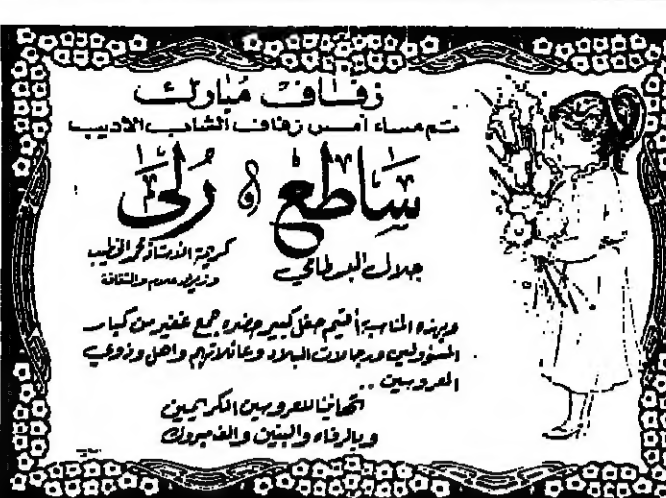 زفاف مبارك
تم مساء أمس زفاف الشاب الأديب
ساطع و رلى
جلال البسطامي
كريمة الأستاذ محمد الخطيب
وزير الإعلام والثقافة
وبهذه المناسبة أقيم حفل كبير حضره جمع غفير من كبار
المسؤولين ورجالات البلاد وعائلاتهم واهل وذوي
العروسين ..
تهانينا للعروسين الكريمين
وبالرفاه والبنين والف مبروك